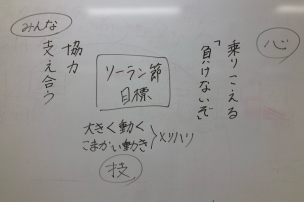 心
乗りこえる
「負けないぞ」
ソーラン節
目標
みんな
協力
支え合う
大きく動く
こまかい動き
メリハリ
技